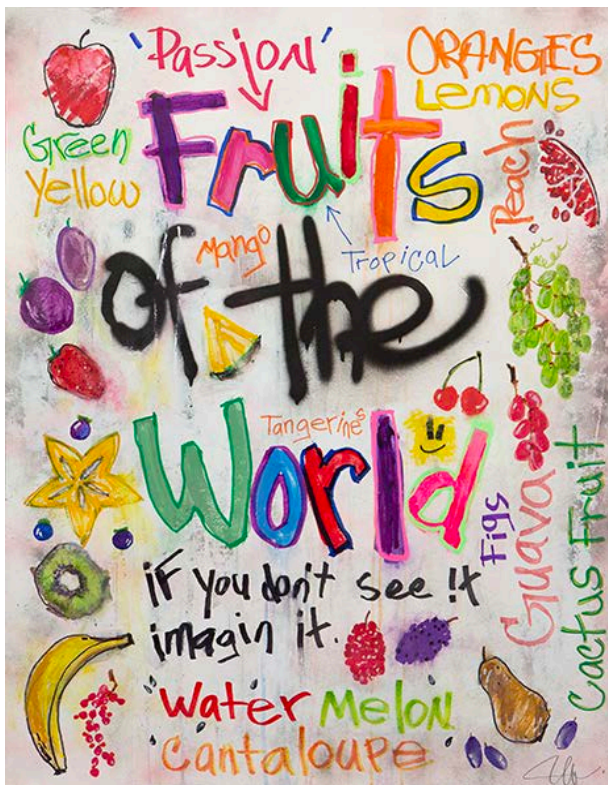 'Passion'
ORANGES
Lemons
Fruits
Green
Yellow
Peach
Mango
Tropical
of the
Tangerines
World
Figs
Guava
Cactus Fruit
if you don't see !t
imagin it.
Water Melon
Cantaloupe